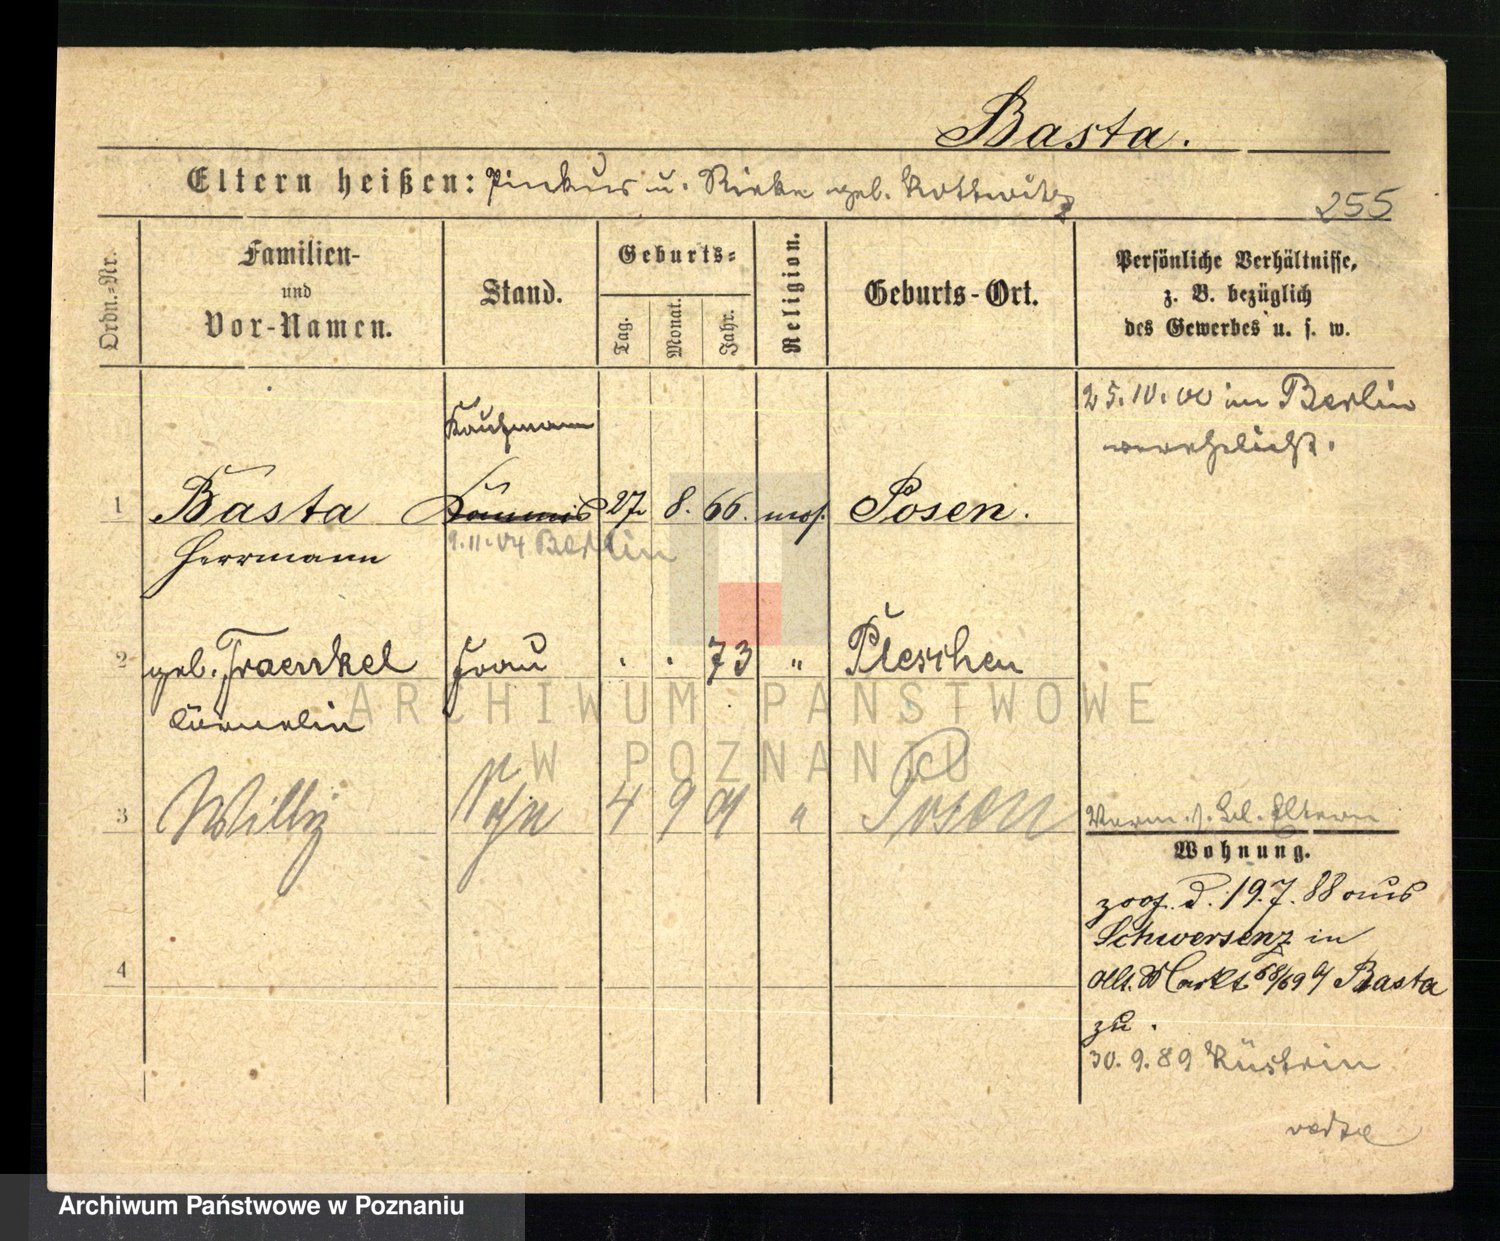 Basta.
Eltern heißen: Pinkus u. Rieke geb. Kottwitz
255
Ordn.-Nr.
Familien-
und
Vor-Namen.
Stand.
Geburts-
Tag.
Monat.
Jahr.
Religion.
Geburts-Ort.
Persönliche Verhältnisse,
z. B. bezüglich
des Gewerbes u. s. w.
25.IV.00 in Berlin
verehelicht.
Kaufmann
1 Basta Kommis 27. 8. 66. mos. Posen.
Herrmann
9.11.04 Berlin
2 geb. Fraenkel Frau . . 73 " Pleschen
3 Willy Sohn 4 9 01 " Posen
Eltern
Wohnung.
zog. d. 19.7.88 aus
Schwersenz in
Alt. Markt 68/69 b/ Basta
zu.
30.9.89 Küstrin
4
ARCHIWUM PAŃSTWOWE
W POZNANIU
Archiwum Państwowe w Poznaniu